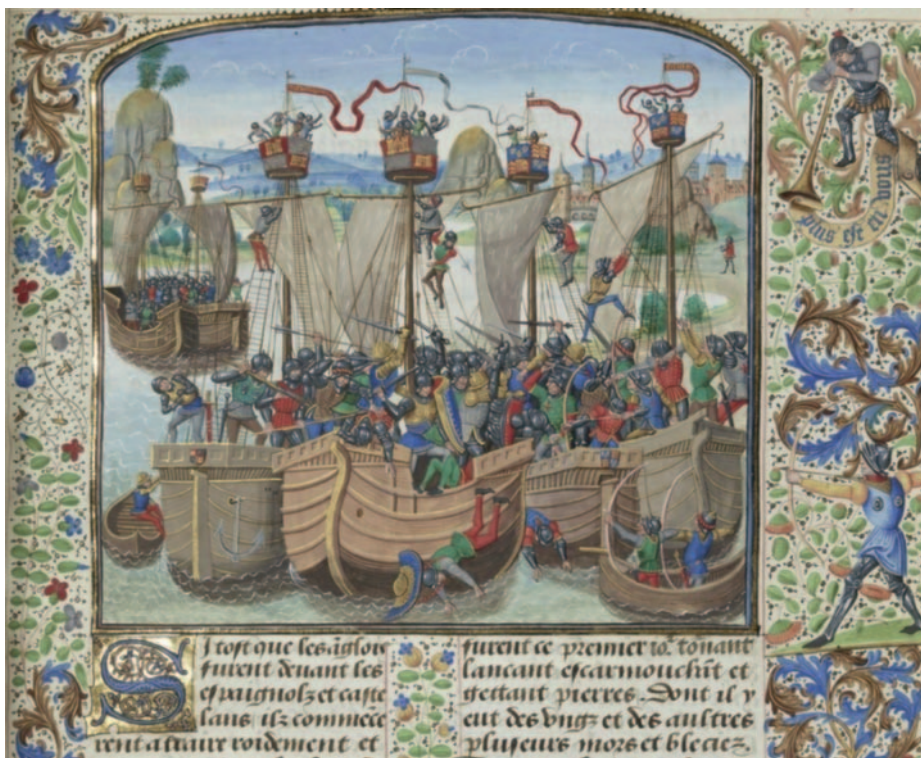 plus est en vous
SI tost que les āglois
furent deuant les
espaignolz et caste
lans ilz commēce
rent a traire roidement et
furent ce premier
lancant escarmouchāt et
gettant pierres. Dont il y
eut des vngz et des aultres
plusieurs mors et bleciez.